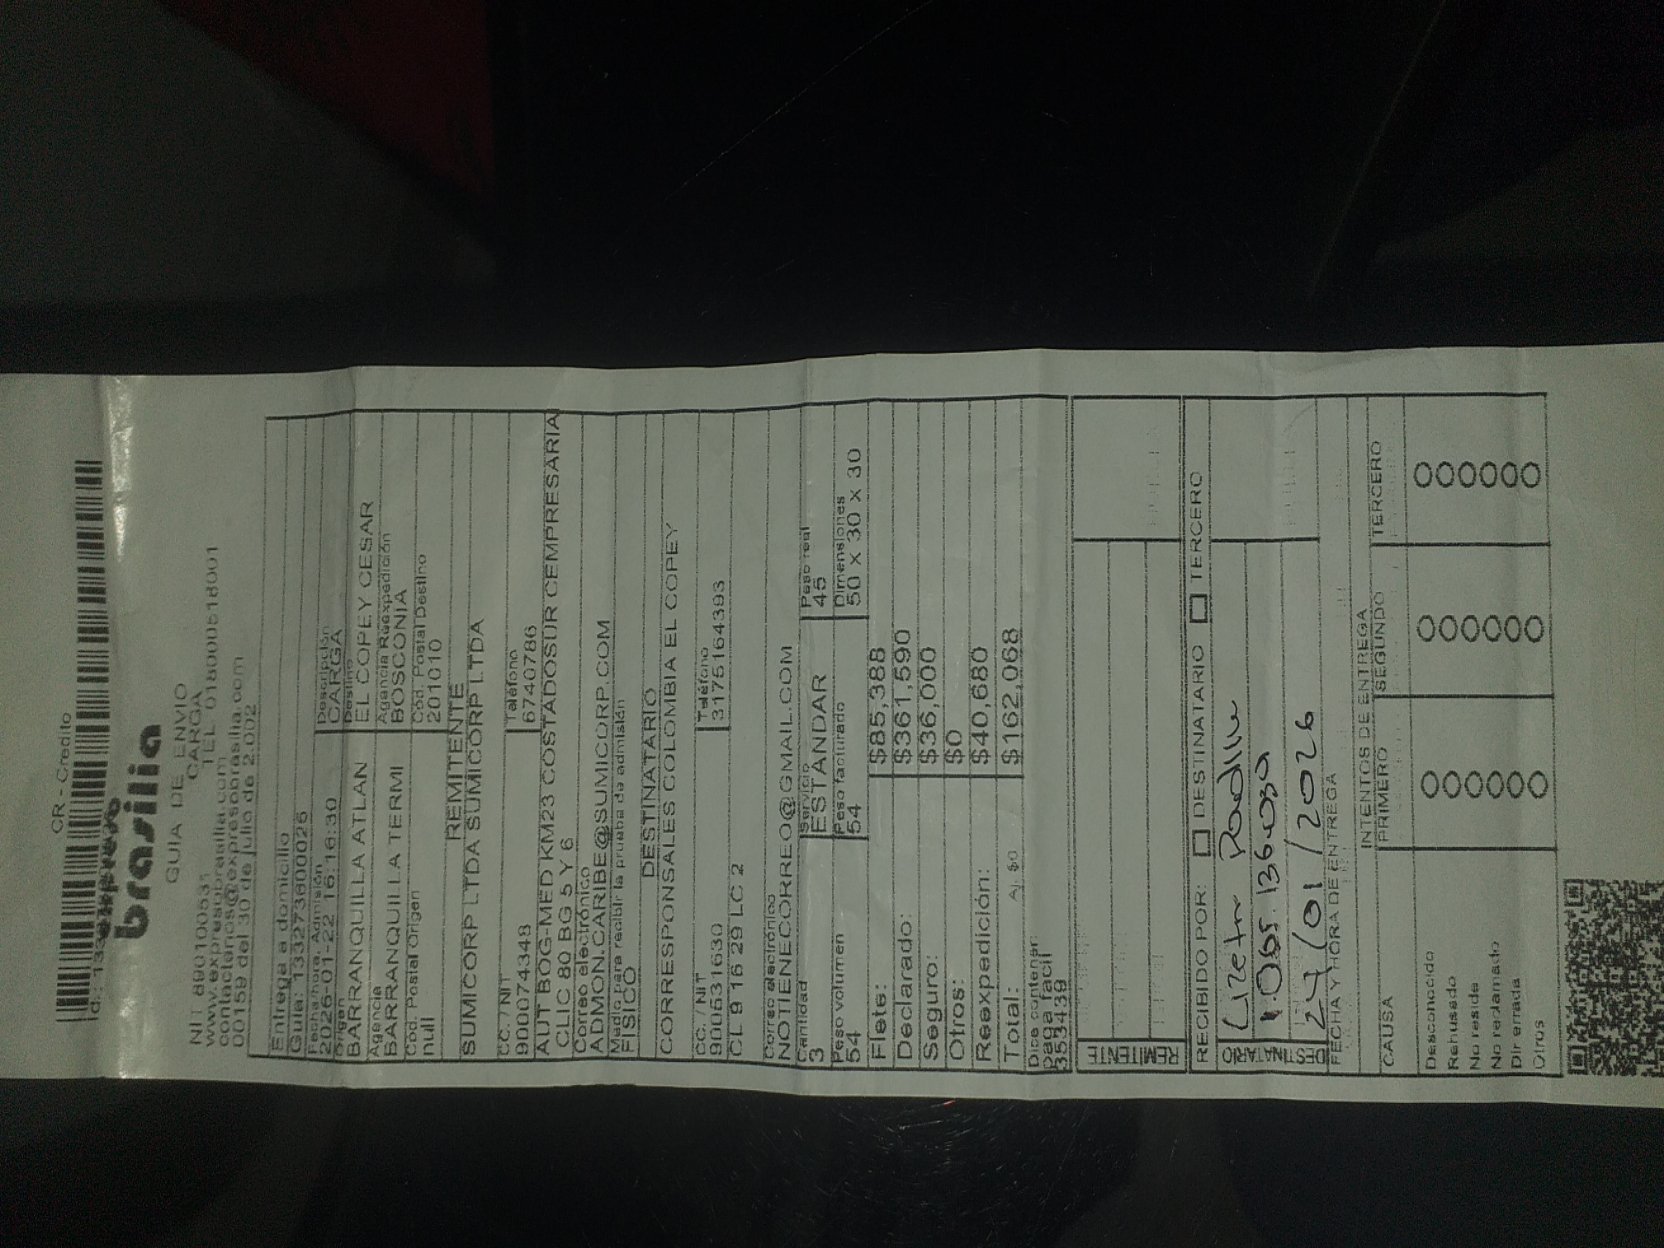 CR - Credito
brasilia
GUIA DE ENVIO
CARGA
NIT 890100531 TEL 018000518001
www.expresobrasilia.com
contactenos@expresobrasilia.com
00159 del 30 de julio de 2.002
Entrega a domicilio
Guia: 133273600025
Fecha/hora. Admisión
2026-01-22 16:16:30
Descripción
CARGA
Origen
BARRANQUILLA ATLAN
Destino
EL COPEY CESAR
Agencia
BARRANQUILLA TERMI
Agencia Reexpedición
BOSCONIA
Cód. Postal Origen
null
Cód. Postal Destino
201010
REMITENTE
SUMICORP LTDA SUMICORP LTDA
CC. / NIT
900074348
Teléfono
6740786
AUT BOG-MED KM23 COSTADOSUR CEMPRESARIA
CLIC 80 BG 5 Y 6
Correo electrónico
ADMON.CARIBE@SUMICORP.COM
Medio para recibir la prueba de admisión
FISICO
DESTINATARIO
CORRESPONSALES COLOMBIA EL COPEY
CC. / NIT
9005531630
Teléfono
3175164393
CL 9 16 29 LC 2
Correo electrónico
NOTIENECORREO@GMAIL.COM
Cantidad
3
Servicio
ESTANDAR
Peso real
45
Peso volumen
54
Peso facturado
54
Dimensiones
50 x 30 x 30
Flete: $85,388
Declarado: $361,590
Seguro: $36,000
Otros: $0
Reexpedición: $40,680
Total: Aj. $0 $162,068
Dice contener
paga facil
353439
REMITENTE
RECIBIDO POR: DESTINATARIO TERCERO
DESTINATARIO
24/01/2026
FECHA Y HORA DE ENTREGA
INTENTOS DE ENTREGA
CAUSA PRIMERO SEGUNDO TERCERO
Desconocido
Rehusado
No reside
No reclamado
Dir errada
Otros